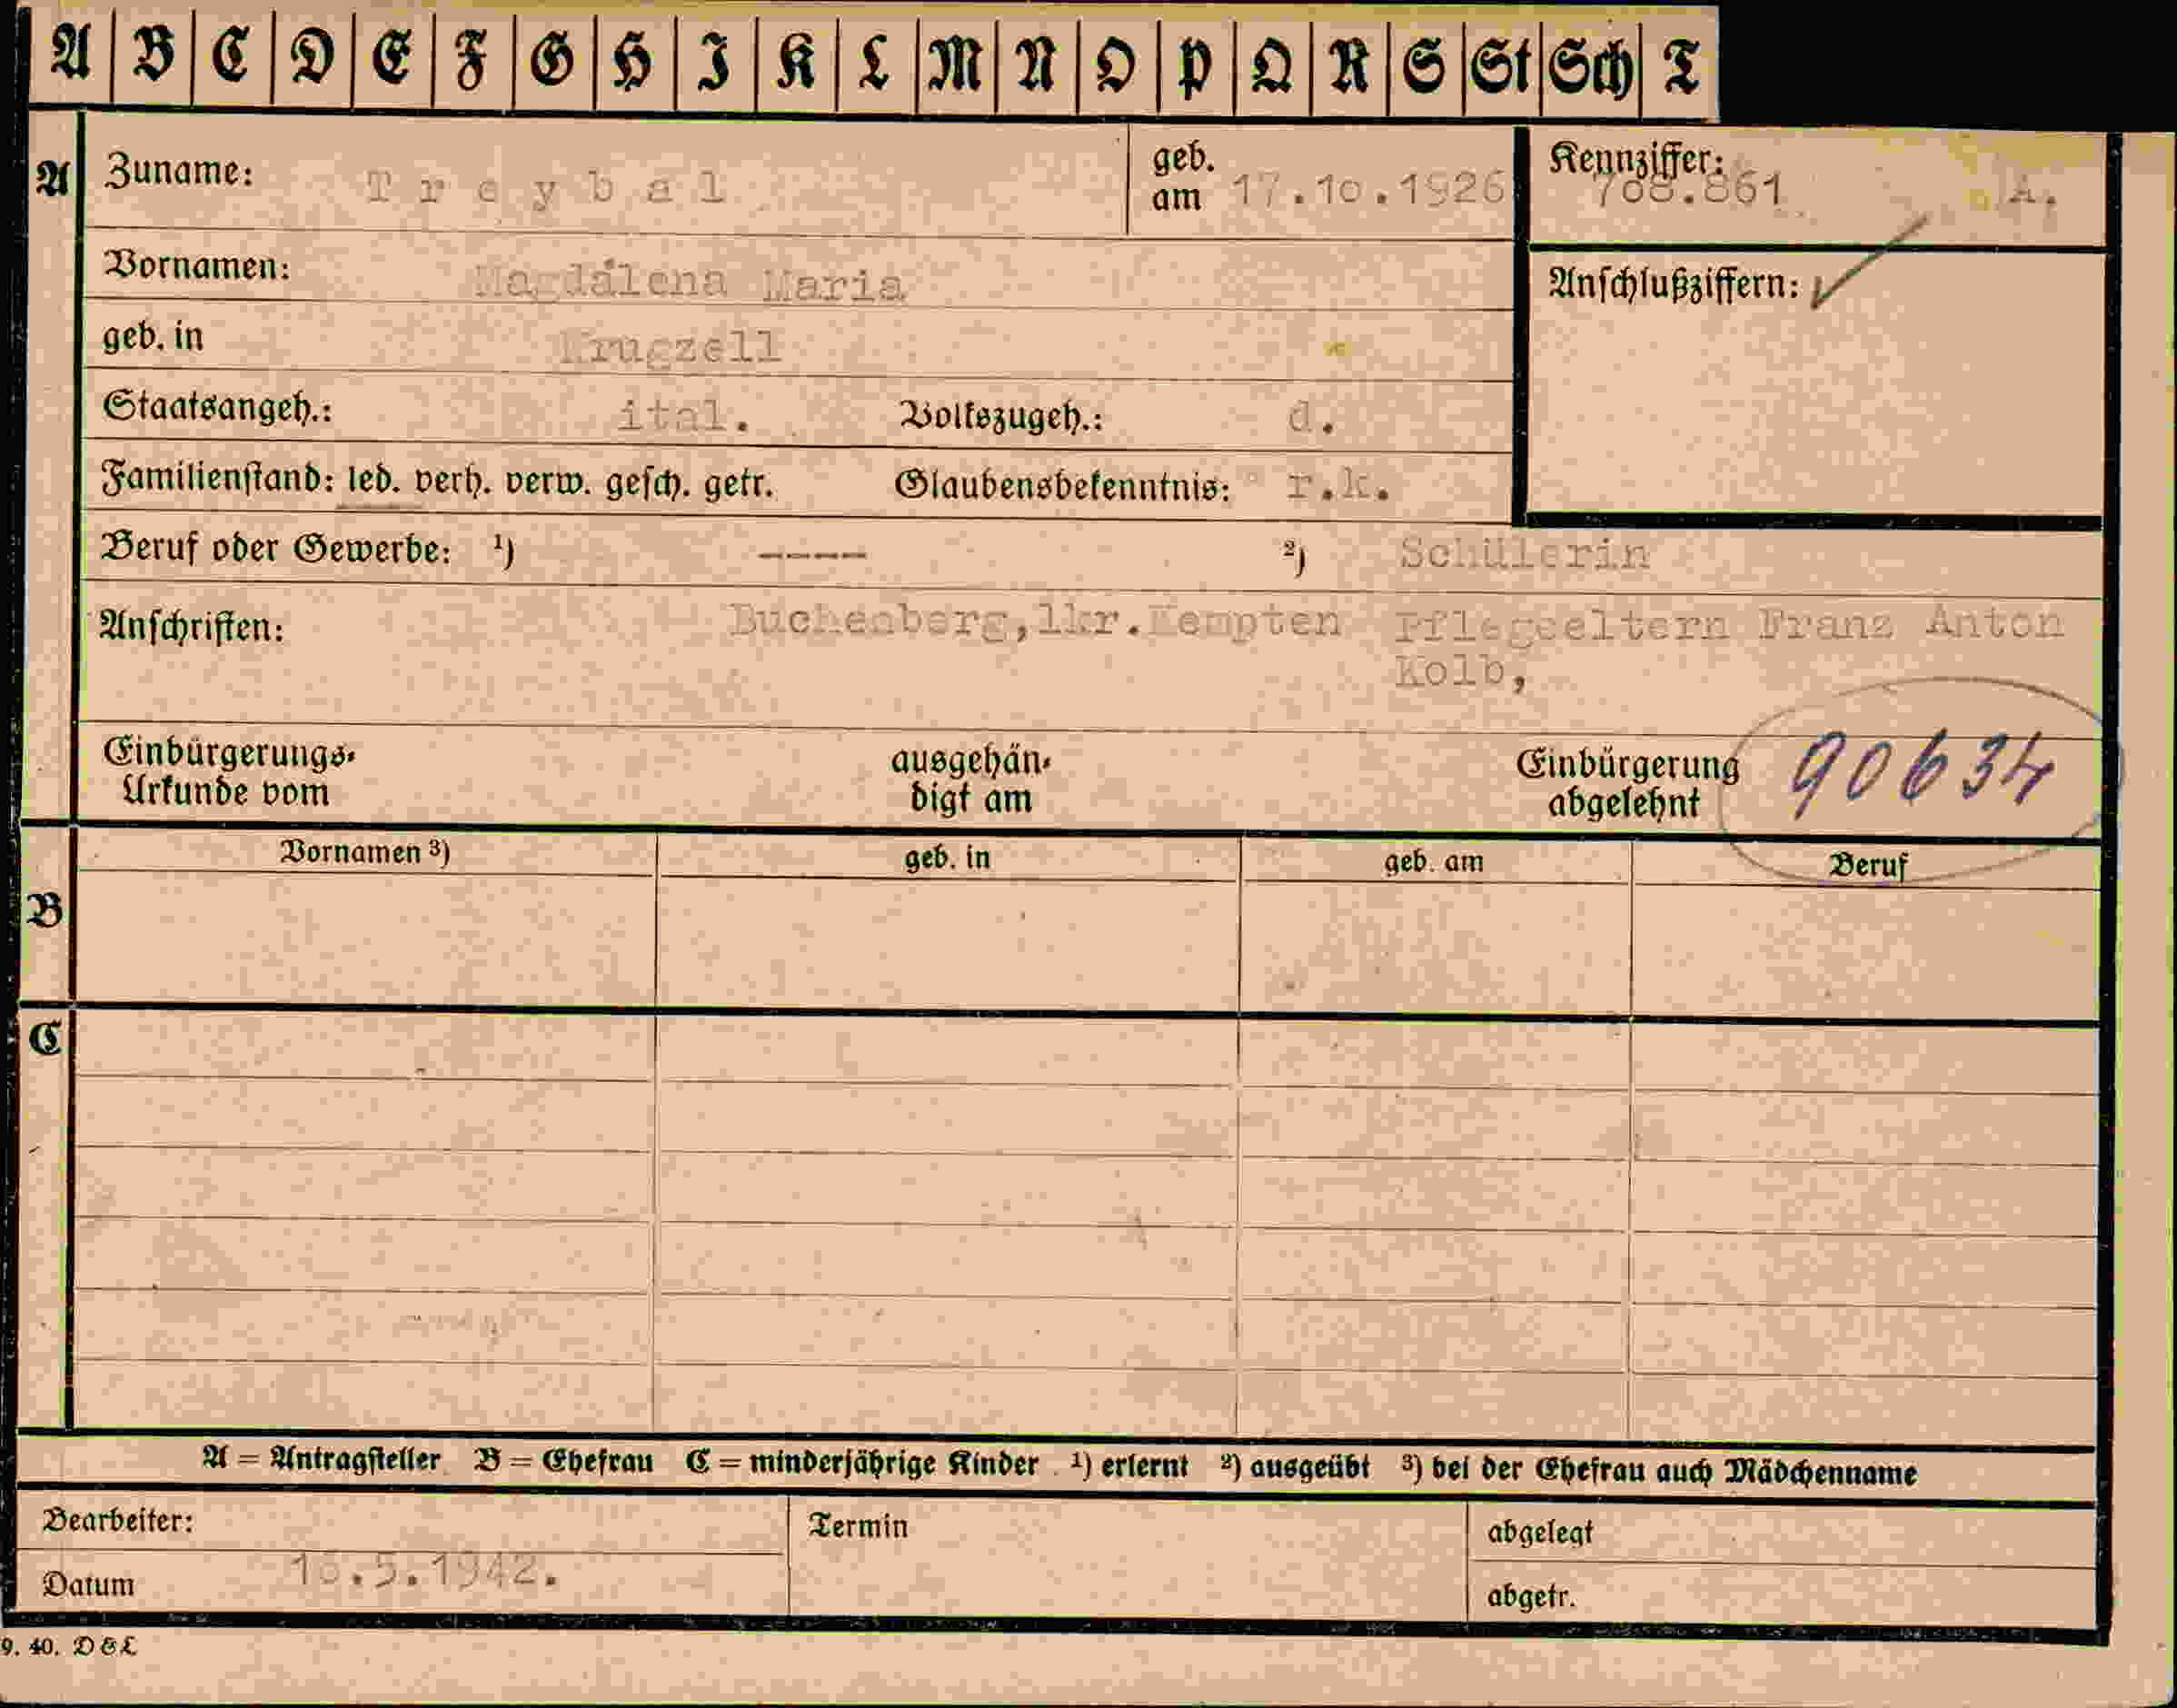 A B C D E F G H I K L M N O P Q R S St Sch T
A Zuname: Treybal geb. am 17.10.1926 Kennziffer: 708.861 A.
Vornamen: Magdalena Maria Anschlußziffern:
geb. in Krugzell
Staatsangeh.: ital. Volkszugeh.: d.
Familienstand: led. verh. verw. gesch. getr. Glaubensbekenntnis: r.k.
Beruf oder Gewerbe: ¹) ---- ²) Schülerin
Anschriften: Buchenberg,lkr.Kempten Pflegeeltern Franz Anton
Kolb,
Einbürgerungs- ausgehän- Einbürgerung 90634
Urkunde vom digt am abgelehnt
Vornamen ³) geb. in geb. am Beruf
B
C
A = Antragsteller B = Ehefrau C = minderjährige Kinder ¹) erlernt ²) ausgeübt ³) bei der Ehefrau auch Mädchenname
Bearbeiter: Termin abgelegt
Datum abgetr.
9. 40. D&L